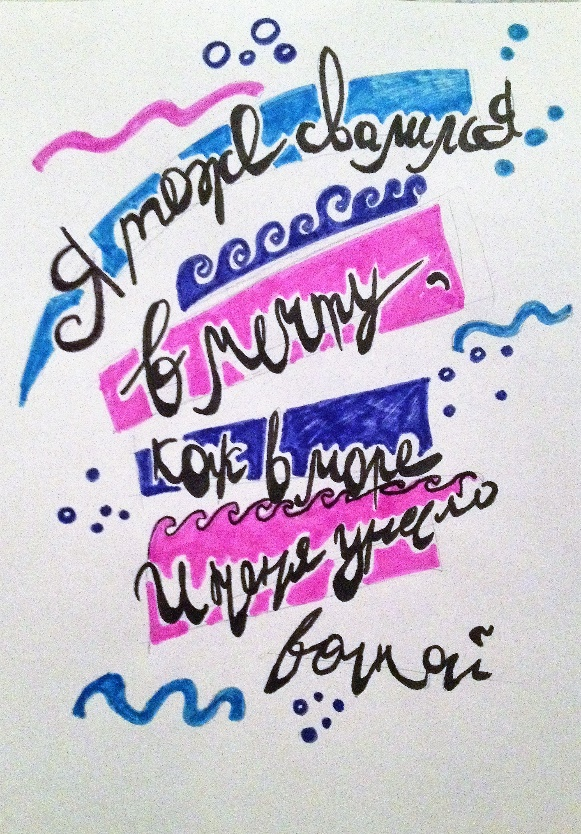 Я тоже свалился
в мечту,
как в море
И меня унесло
волной